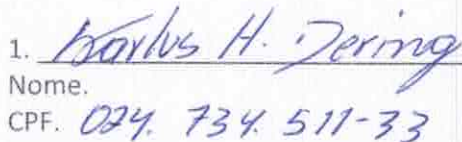 1. Karlus H. Dering
Nome.
CPF. 024. 734. 511-33